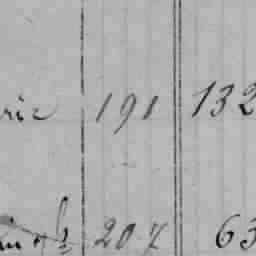 ric 191 132
207 63